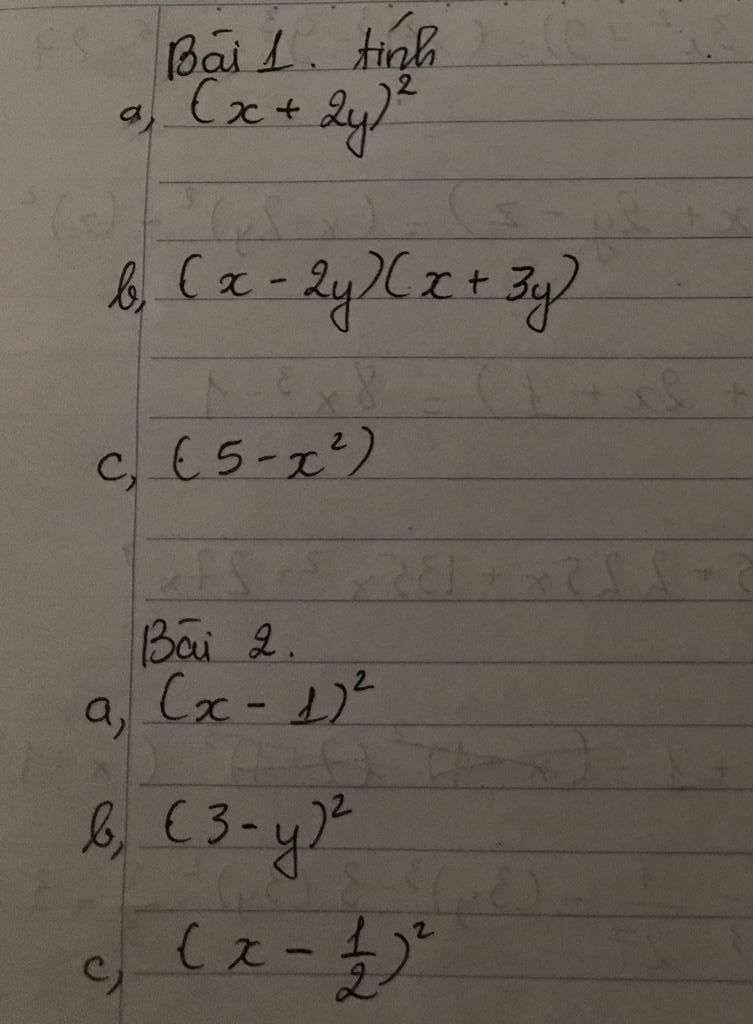 Bài 1. tính
a, (x + 2y)²
b, (x - 2y)(x + 3y)
c, (5 - x²)
Bài 2.
a, (x - 1)²
b, (3 - y)²
c, (x - 1/2)²